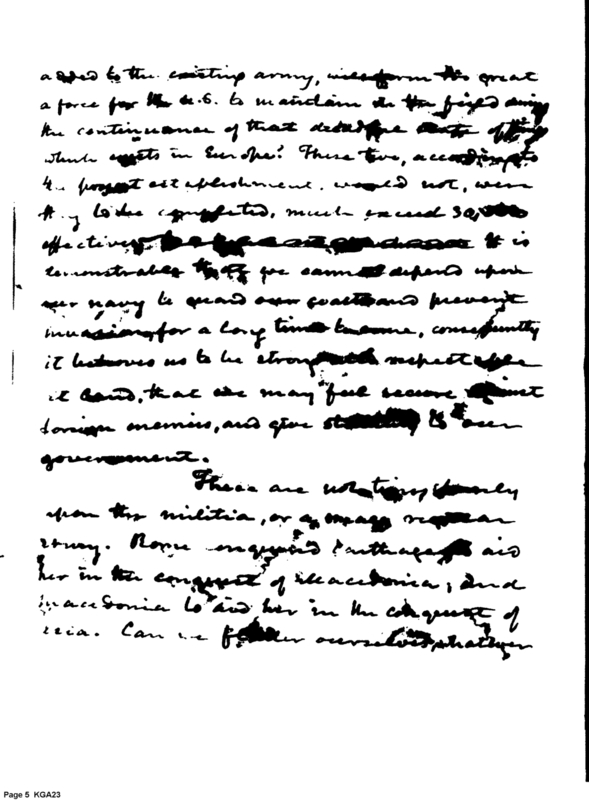 added to the existing army, will form too great
a force for the U.S. to maintain in the field during
the continuance of that dreadful state of things
which exists in Europe? These two, according to
the present establishment, would not, were
they to be completed, much exceed 30,000
effectives. It is
demonstrable that we cannot depend upon
our navy to guard our coasts and prevent
invasion for a long time to come, consequently
it behoves us to be strong and respectable
at land, that we may feel secure against
foreign enemies, and give to our
government.
These are not times to rely
upon the militia, or a regular
army. Rome conquered Carthage aid
her in the conquest of Macedonia; and
Macedonia to aid her in the conquest of
Can we flatter ourselves, whatever
Page 5 KGA23